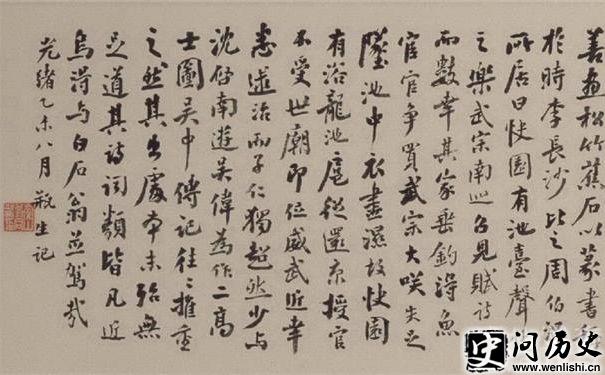 善畫松竹蕉石以篆書
於時李長沙比之周伯
所居曰快園有池臺聲
之樂武宗南巡召見賦詩
而數幸其家垂釣得魚
宦官爭買武宗大咲失足
墜池中衣盡濕故快園
有浴龍池扈從還京授官
不受世廟即位威武近幸
悉逮治而子仁獨超然少与
沈 南遊吳偉為作二高
士圖吳中傳記往〻推重
之然其出處本末殆無
足道其詩詞類皆凡近
烏得与白石翁並駕哉
光緒乙未八月瓶生記
问历史
www.wenlishi.cn